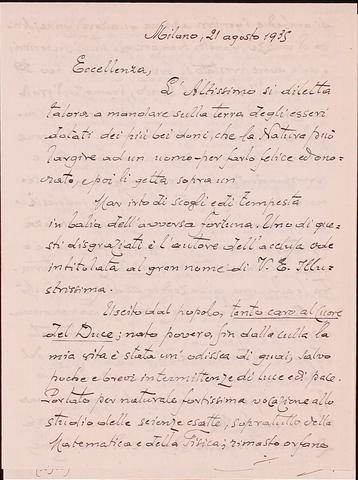 Milano, 21 agosto 1935
Eccellenza,
L'Altissimo si diletta
talora a mandare sulla terra degli esseri
dotati dei più bei doni, che la Natura può
largire ad un uomo per farlo felice ed ono-
rato, e poi li getta sopra un
Mar irto di scogli ed in tempesta
in balia dell'avversa fortuna. Uno di que-
sti disgraziati è l'autore dell'acclusa ode
intitolata al gran nome di V. E. Illu-
strissima.
Uscito dal popolo, tanto caro al Cuore
del Duce; nato povero, fin dalla culla la
mia vita è stata un'odissea di guai, salvo
poche e brevi intermittenze di luce e di pace.
Portato per naturale fortissima vocazione allo
studio delle scienze esatte, sopratutto della
Matematica e della Fisica; rimasto orfano